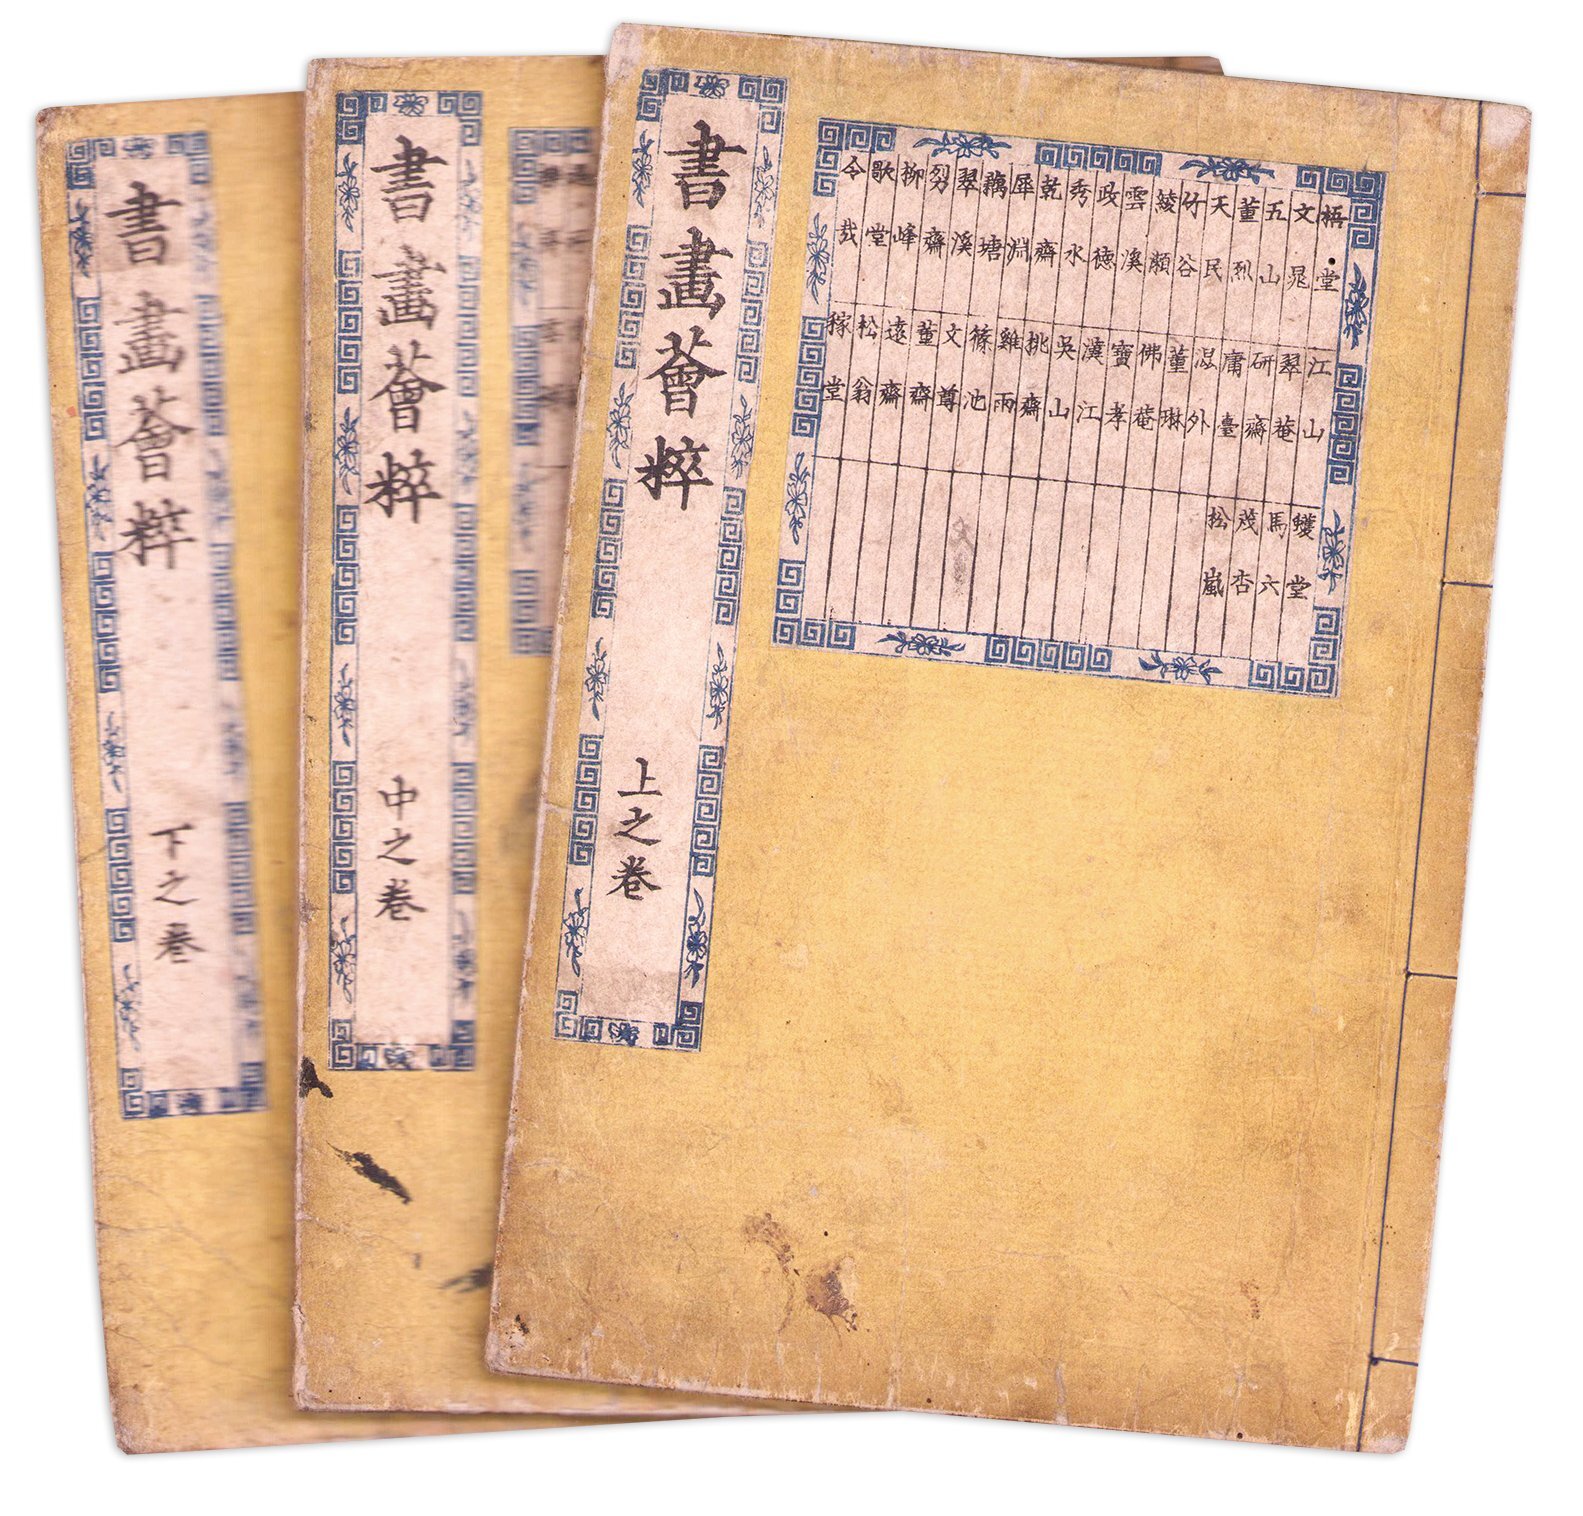 書畫薈粹
上之卷
梧堂
文晁
五山
董烈
天民
竹谷
綾瀬
雲溪
政徳
秀水
乾齋
犀淵
藕塘
翠溪
烈齋
柳峰
歌堂
令哉
江山
翠菴
研齋
庸臺
外
董琳
佛菴
寶孝
漢江
吳山
桃齋
雞雨
篠池
文尊
董齋
遠齋
松翁
稼堂
蠖堂
馬六
茂杏
松嵐
書畫薈粹
中之卷
書畫薈粹
下之卷